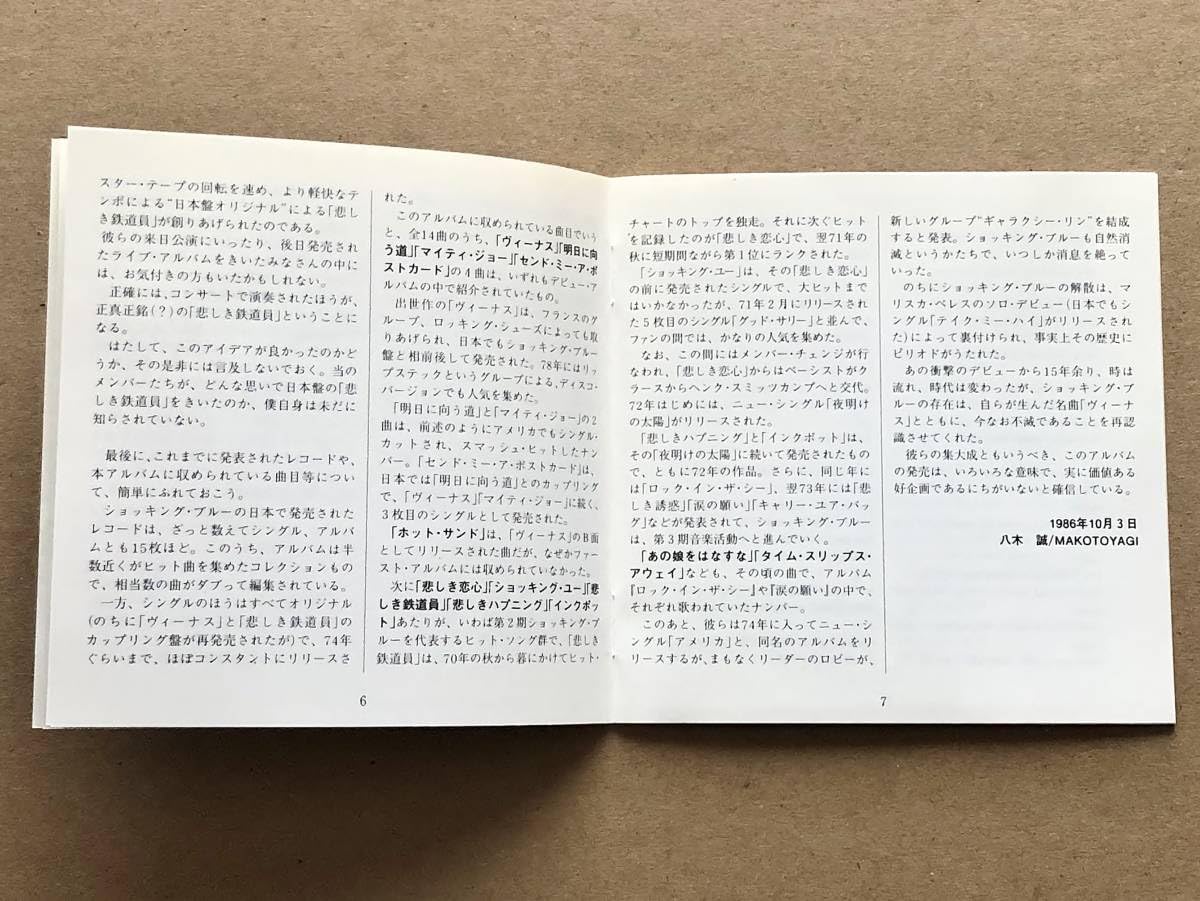 スター・テープの回転を速め、より軽快なテ
ンポによる“日本盤オリジナル”による「悲し
き鉄道員」が創りあげられたのである。
彼らの来日公演にいったり、後日発売され
たライブ・アルバムをきいたみなさんの中に
は、お気付きの方もいたかもしれない。
正確には、コンサートで演奏されたほうが、
正真正銘(?)の「悲しき鉄道員」ということに
なる。
はたして、このアイデアが良かったのかど
うか、その是非には言及しないでおく。当の
メンバーたちが、どんな思いで日本盤の「悲
しき鉄道員」をきいたのか、僕自身は未だに
知らされていない。
最後に、これまでに発表されたレコードや、
本アルバムに収められている曲目等につい
て、簡単にふれておこう。
ショッキング・ブルーの日本で発売された
レコードは、ざっと数えてシングル、アルバ
ムとも15枚ほど。このうち、アルバムは半
数近くがヒット曲を集めたコレクションもの
で、相当数の曲がダブって編集されている。
一方、シングルのほうはすべてオリジナル
(のちに「ヴィーナス」と「悲しき鉄道員」の
カップリング盤が再発売されたが)で、74年
ぐらいまで、ほぼコンスタントにリリースさ
6
れた。
このアルバムに収められている曲目でいう
と、全14曲のうち、「ヴィーナス」「明日に向
う道」「マイティ・ジョー」「センド・ミー・ア・ポ
ストカード」の4曲は、いずれもデビュー・ア
ルバムの中で紹介されていたもの。
出世作の「ヴィーナス」は、フランスのグ
ループ、ロッキング・シューズによっても取
りあげられ、日本でもショッキング・ブルー
盤と相前後して発売された。78年にはリッ
プステックというグループによる、ディスコ・
バージョンでも人気を集めた。
「明日に向う道」と「マイティ・ジョー」の2
曲は、前述のようにアメリカでもシングル・
カットされ、スマッシュ・ヒットしたナン
バー。「センド・ミー・ア・ポストカード」は、
日本では「明日に向う道」とのカップリング
で、「ヴィーナス」「マイティ・ジョー」に続く、
3枚目のシングルとして発売された。
「ホット・サンド」は、「ヴィーナス」のB面
としてリリースされた曲だが、なぜかファー
スト・アルバムには収められていなかった。
次に「悲しき恋心」「ショッキング・ユー」「悲
しき鉄道員」「悲しきハプニング」「インクポッ
ト」あたりが、いわば第2期ショッキング・ブ
ルーを代表するヒット・ソング群で、「悲しき
鉄道員」は、70年の秋から暮にかけてヒット・
チャートのトップを独走。それに次ぐヒット
を記録したのが「悲しき恋心」で、翌71年の
秋に短期間ながら第1位にランクされた。
「ショッキング・ユー」は、その「悲しき恋心」
の前に発売されたシングルで、大ヒットまで
はいかなかったが、71年2月にリリースされ
た5枚目のシングル「グッド・サリー」と並んで、
ファンの間では、かなりの人気を集めた。
なお、この間にはメンバー・チェンジが行
なわれ、「悲しき恋心」からはベーシストがク
ラースからヘンク・スミッツカンプへと交代。
72年はじめには、ニュー・シングル「夜明け
の太陽」がリリースされた。
「悲しきハプニング」と「インクポット」は、
その「夜明けの太陽」に続いて発売されたもの
で、ともに72年の作品。さらに、同じ年に
は「ロック・イン・ザ・シー」、翌73年には「悲
しき誘惑」「涙の願い」「キャリー・ユア・バッ
グ」などが発表されて、ショッキング・ブルー
は、第3期音楽活動へと進んでいく。
「あの娘をはなすな」「タイム・スリップス・
アウェイ」なども、その頃の曲で、アルバム
『ロック・イン・ザ・シー』や『涙の願い』の中で、
それぞれ歌われていたナンバー。
このあと、彼らは74年に入ってニュー・シ
ングル「アメリカ」と、同名のアルバムをリ
リースするが、まもなくリーダーのロビーが、
7
新しいグループ“ギャラクシー・リン”を結成
すると発表。ショッキング・ブルーも自然消
滅というかたちで、いつしか消息を絶って
いった。
のちにショッキング・ブルーの解散は、マ
リスカ・ベレスのソロ・デビュー(日本でもシ
ングル「テイク・ミー・ハイ」がリリースされ
た)によって裏付けられ、事実上その歴史に
ピリオドがうたれた。
あの衝撃のデビューから15年余り、時は
流れ、時代は変わったが、ショッキング・ブ
ルーの存在は、自らが生んだ名曲「ヴィーナ
ス」とともに、今なお不滅であることを再認
識させてくれた。
彼らの集大成ともいうべき、このアルバム
の発売は、いろいろな意味で、実に価値ある
好企画であるにちがいないと確信している。
1986年10月3日
八木 誠/MAKOTOYAGI